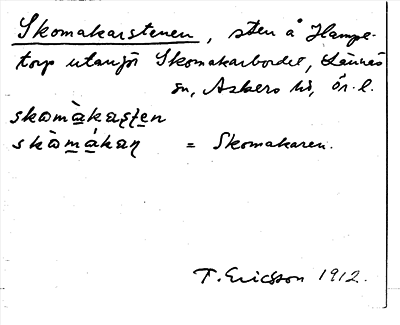 Skomakarstenen, sten å Hampe-
torp utanför Skomakarbordet, Lännäs
sn, Askers hd, Ör. l.
skomàkaṣṭen
skòmákaṇ = Skomakaren.
T. Ericsson 1912.